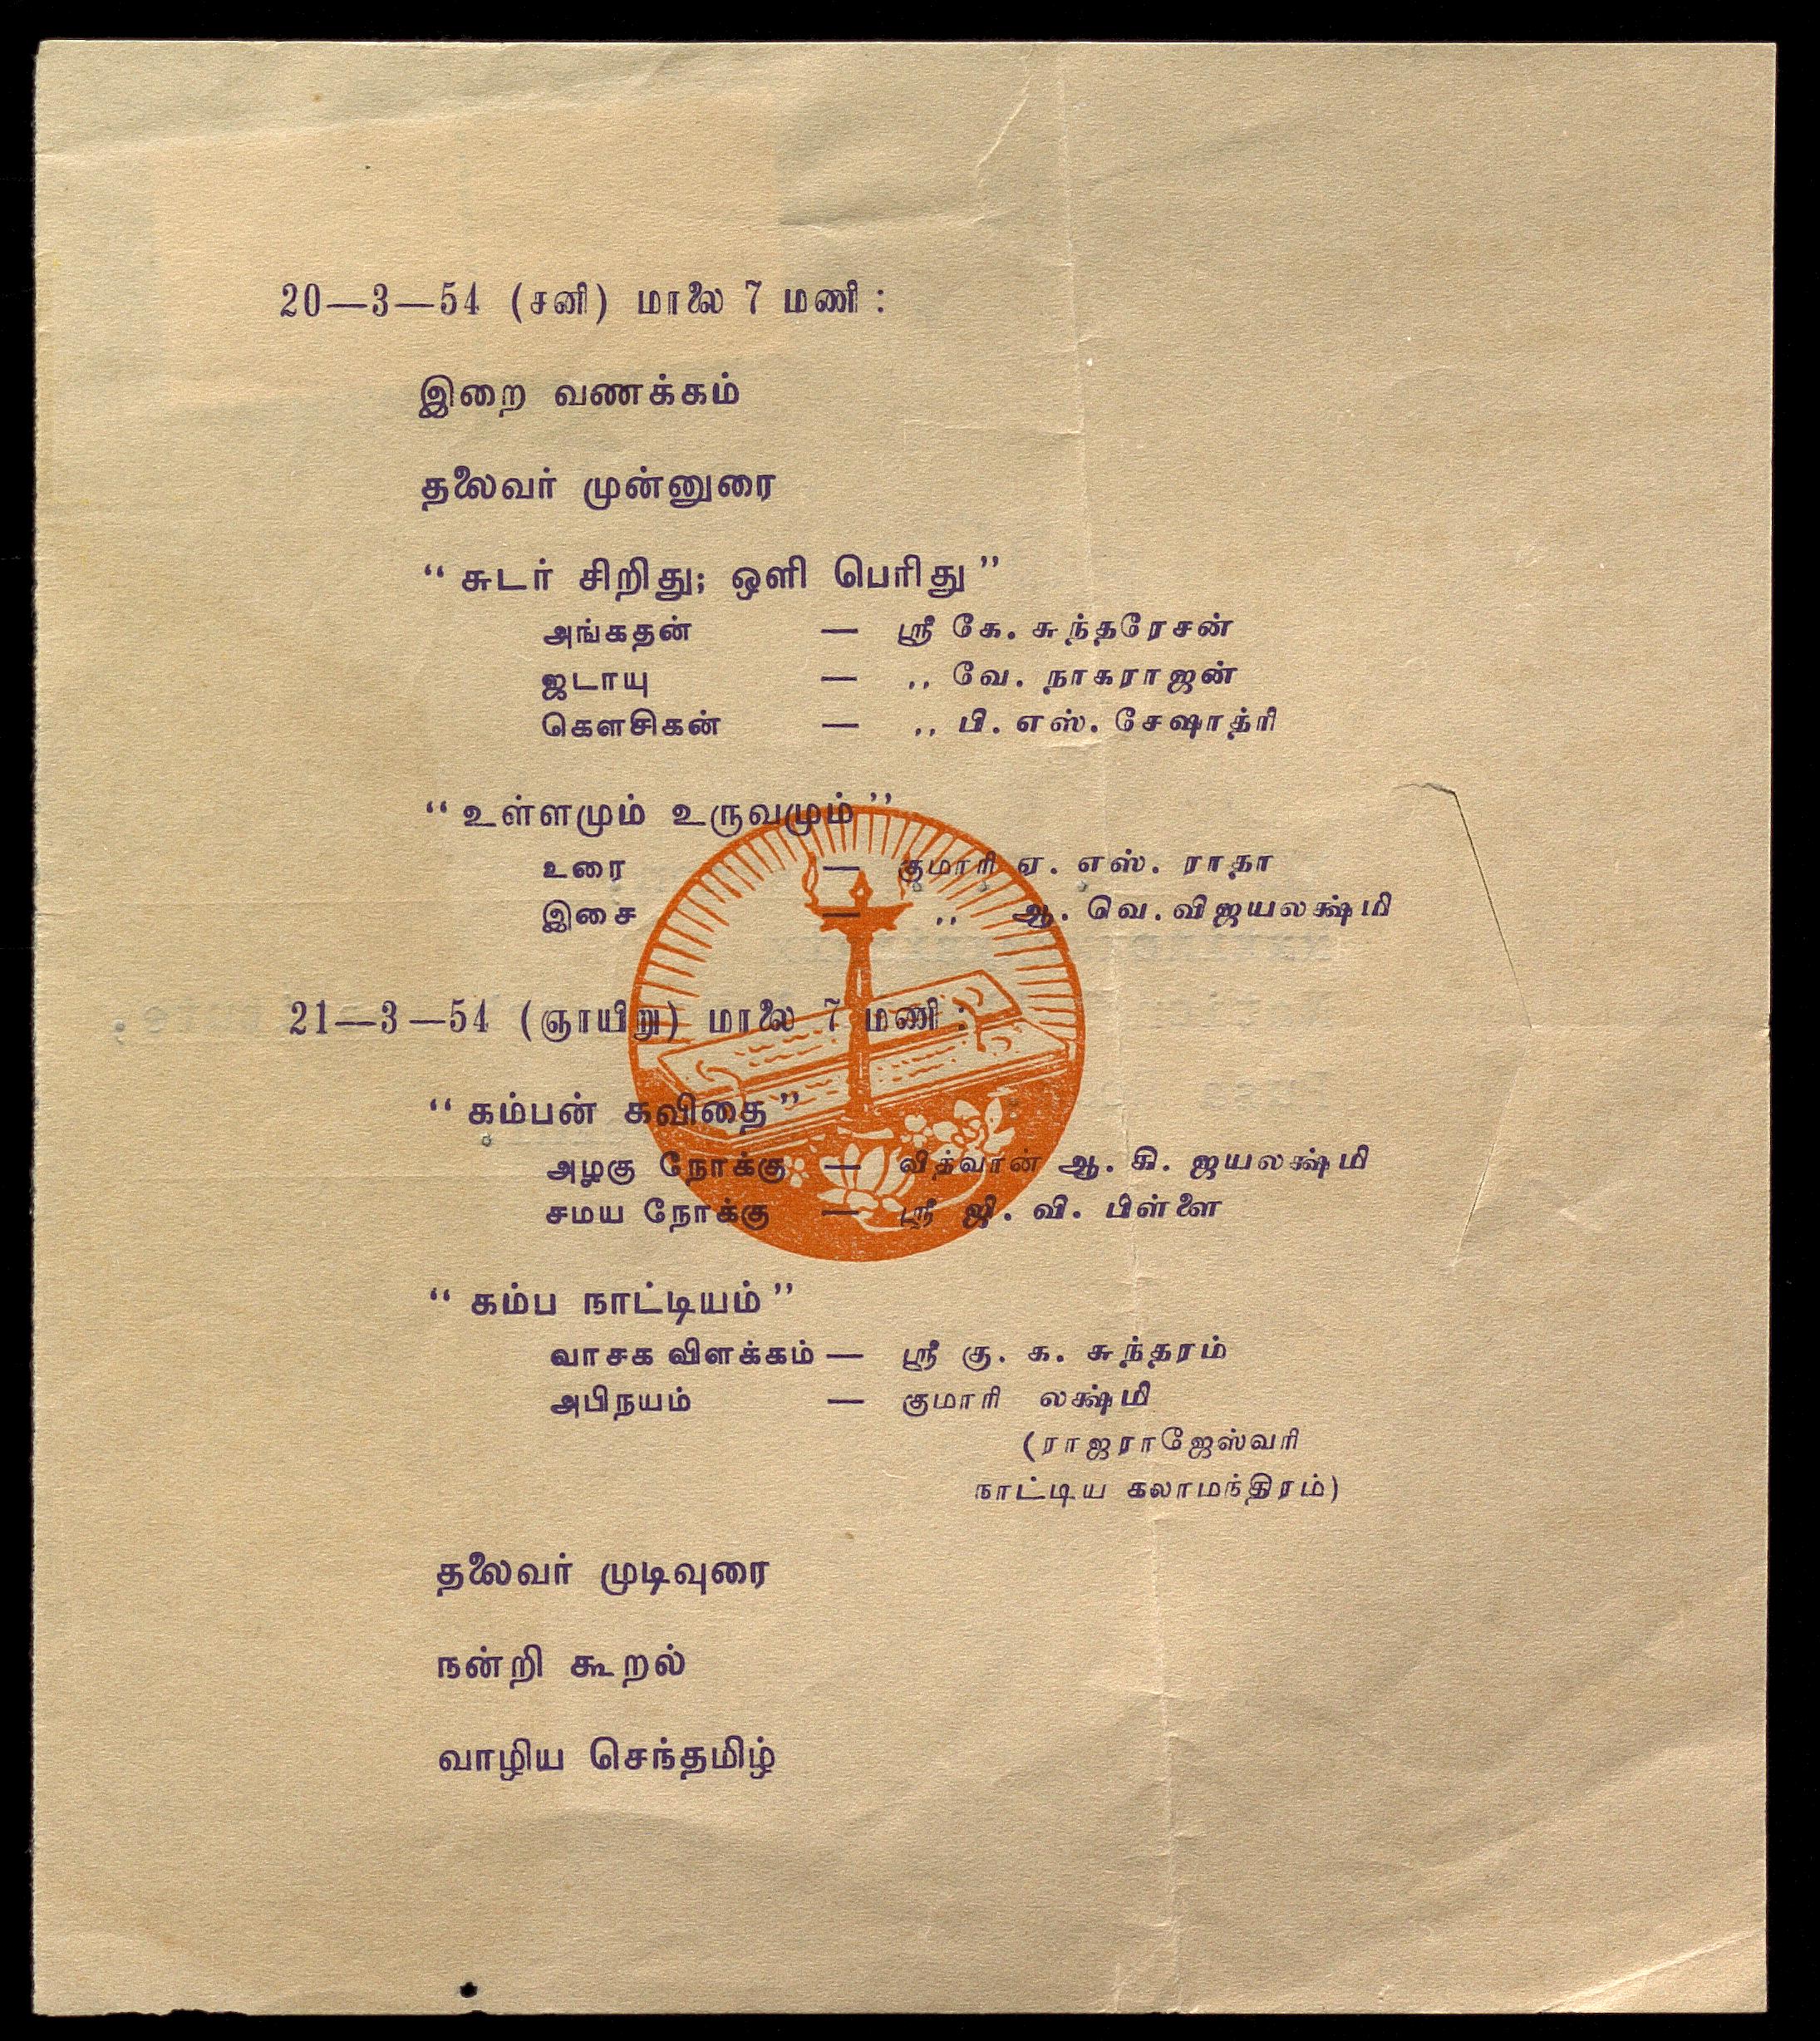 20—3—54 (சனி) மாலை 7 மணி :
இறை வணக்கம்
தலைவர் முன்னுரை
“ சுடர் சிறிது; ஒளி பெரிது ”
அங்கதன் — ஸ்ரீ கே. சுந்தரேசன்
ஜடாயு — ,, வே. நாகராஜன்
கௌசிகன் — ,, பி. எஸ். சேஷாத்ரி
“ உள்ளமும் உருவமும் ”
உரை — குமாரி ஏ. எஸ். ராதா
இசை — ,, ஆ. வெ. விஜயலக்ஷ்மி
21—3—54 (ஞாயிறு) மாலை 7 மணி :
“ கம்பன் கவிதை ”
அழகு நோக்கு — வித்வான் ஆ. கி. ஜயலக்ஷ்மி
சமய நோக்கு — ஸ்ரீ ஜி. வி. பிள்ளை
“ கம்ப நாட்டியம் ”
வாசக விளக்கம் — ஸ்ரீ கு. க. சுந்தரம்
அபிநயம் — குமாரி லக்ஷ்மி
(ராஜராஜேஸ்வரி
நாட்டிய கலாமந்திரம்)
தலைவர் முடிவுரை
நன்றி கூறல்
வாழிய செந்தமிழ்